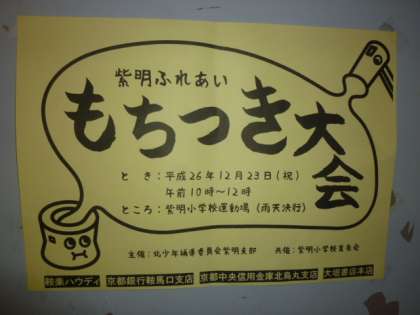 紫明ふれあい
もちつき大会
とき：平成26年12月23日（祝）
午前10時～12時
ところ：紫明小学校運動場（雨天決行）
主催：北少年補導委員会紫明支部　共催：紫明小学校育友会
鞍楽ハウディ　京都銀行鞍馬口支店　京都中央信用金庫北烏丸支店　大垣書店本店